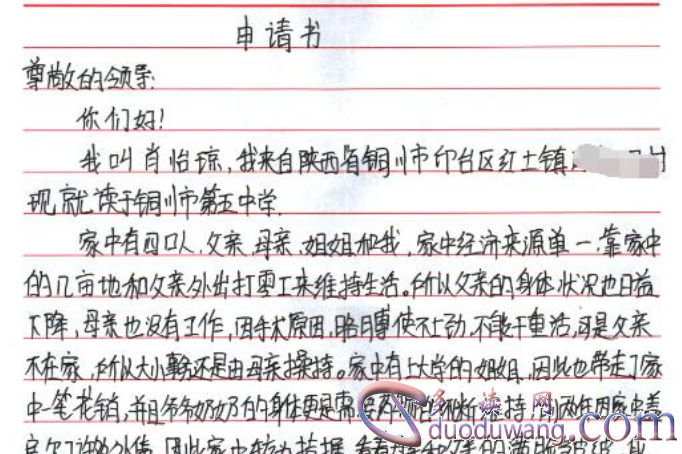 申请书
尊敬的领导:
你们好!
我叫肖怡琼,我来自陕西省铜川市印台区红土镇
现就读于铜川市第五中学.
家中有四口人,父亲、母亲、姐姐和我,家中经济来源单一,靠家中
的几亩地和父亲外出打零工来维持生活。所以父亲的身体状况也日益
下降,母亲也没有工作,因手术原因,胳膊使不上劲,不能干重活,可是父亲
不在家,所以大小事务还是由母亲操持。家中有上大学的姐姐,因此也带走了家
中一笔花销,并且爷爷奶奶的身体更是需要药物的不断维持,前两年因家中盖
房欠了许多外债,因此家中较为拮据,看着母亲和父亲的满脸疲惫,我
多读网
duoduwang.com